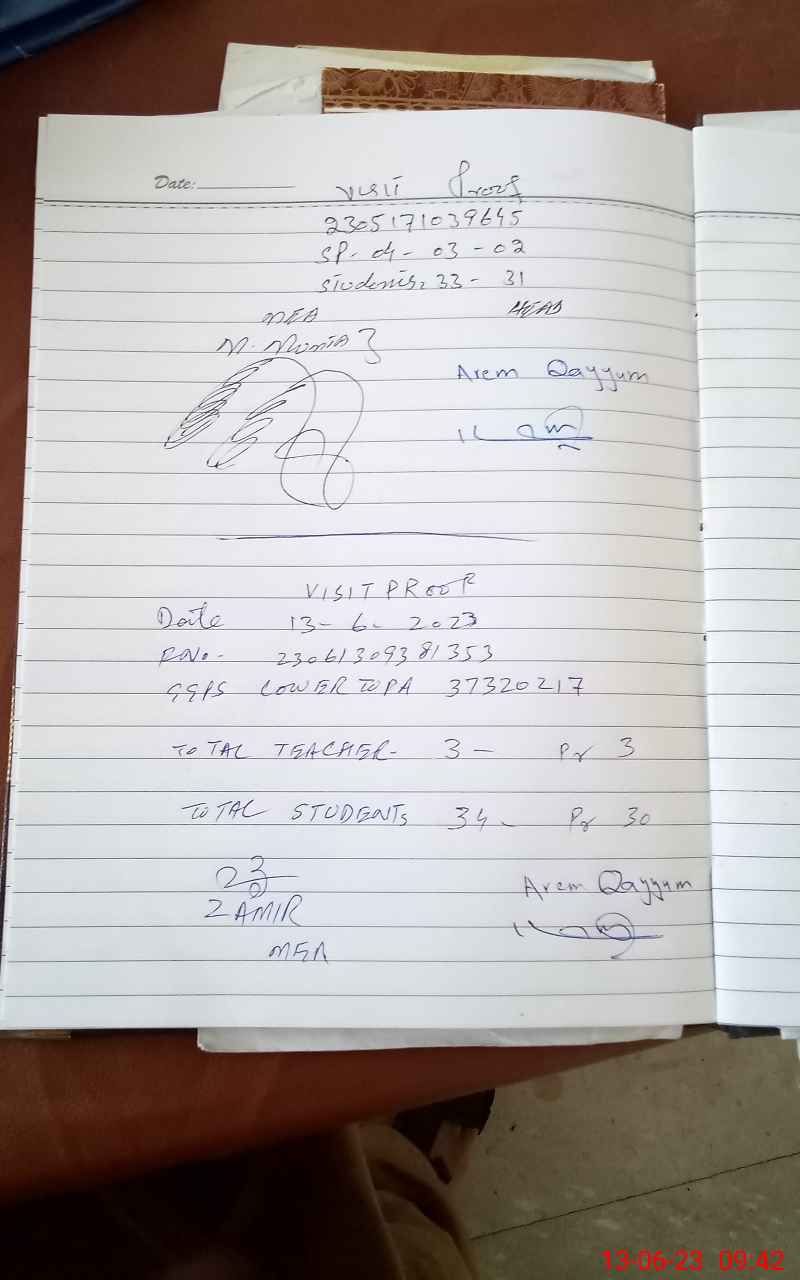 Date:
VISIT Proof
2305171039645
SP- 04 - 03 - 02
Students: 33 - 31
MEA HEAD
M.
Arem Qayyum
VISIT PROOF
Date 13- 6- 2023
R.No. 2306130938 1353
GGPS LOWER TOPA 37320217
TOTAL TEACHER- 3 - Pr 3
TOTAL STUDENTS 34 - Pr 30
Arem Qayyum
ZAMIR
MEA
13-06-23 09:42